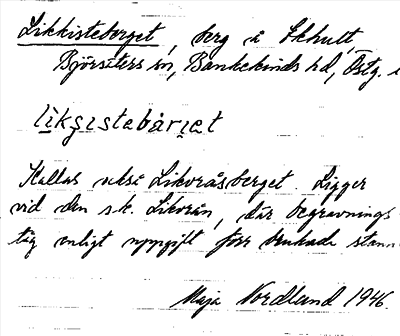 Likkisteberget, berg å Ekhult,
Björsäters sn, Bankekinds hd, Östg.
l i k ş ı s t e b à r ı e t
Kallas också Likvråsberget. Ligger
vid den s.k. Likvrån, där begravnings
tåg enligt uppgift förr brukade stann
Maja Nordlund 1946.